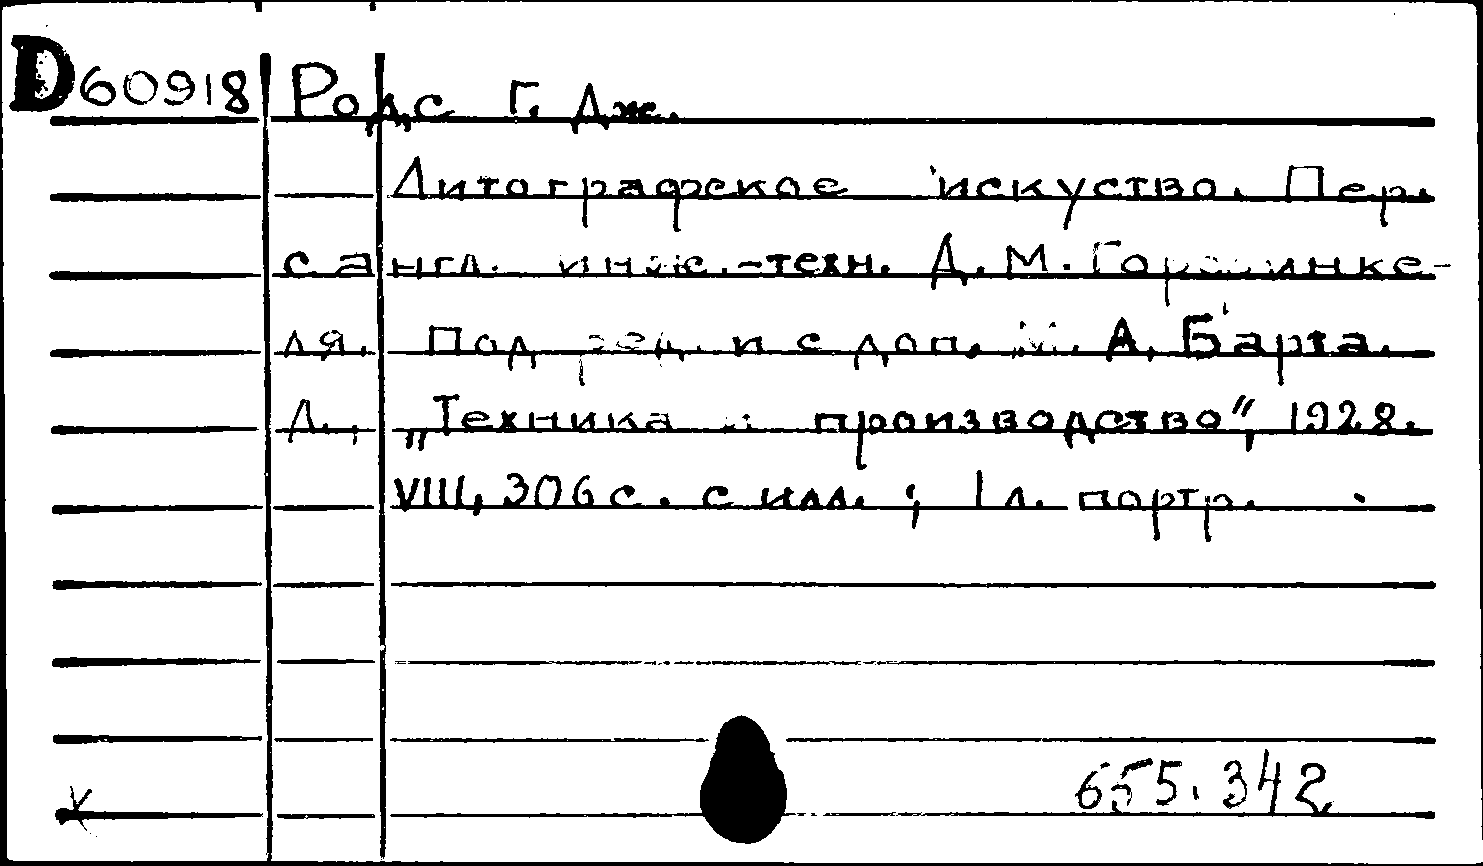 D60918 Родс Г. Дж.
Литографское искуство. Пер.
с англ. инж.-техн. Д. М.
ля. Под ред. и с доп. М. А. Барта.
Л., „Техника и производство“, 1928.
VIII, 306 с. с илл.; 1 л. портр.
655.342